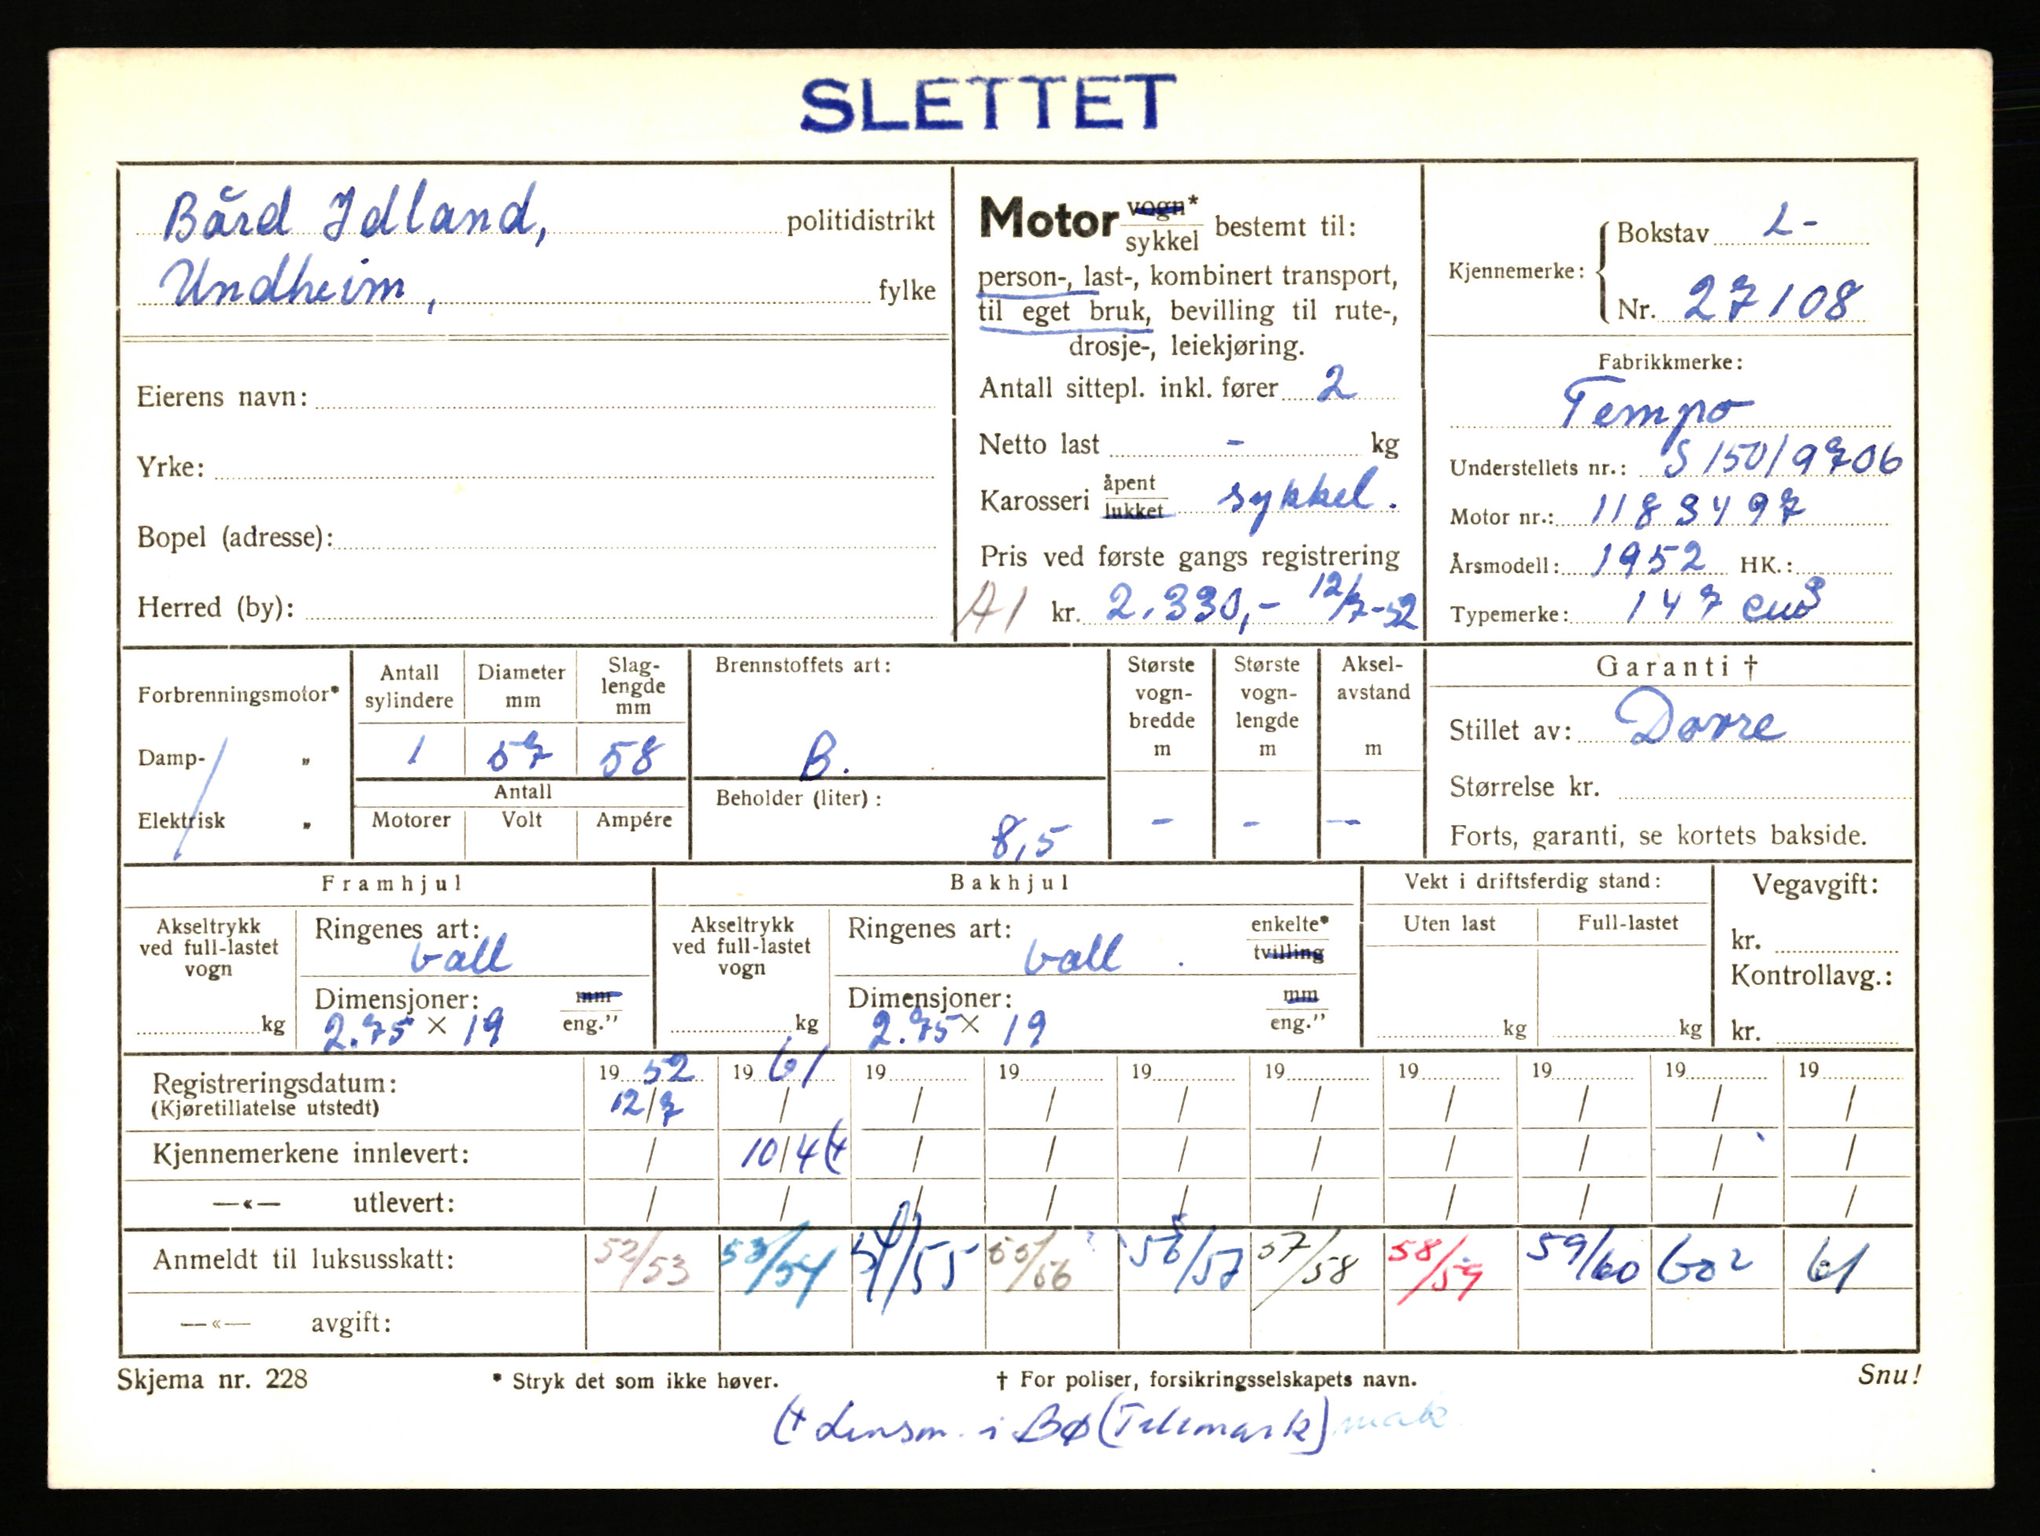 SLETTET
Bård Idland, politidistrikt
Undheim, fylke
Eierens navn:
Yrke:
Bopel (adresse):
Herred (by):
Motor vogn* sykkel bestemt til:
person-, last-, kombinert transport,
til eget bruk, bevilling til rute-,
drosje-, leiekjøring.
Antall sittepl. inkl. fører 2
Netto last - kg
Karosseri åpent lukket sykkel.
Pris ved første gangs registrering
A1 kr. 2.330,- 12/7-52
Kjennemerke: Bokstav L-
Nr. 27108
Fabrikkmerke:
Tempo
Understellets nr.: S 150/9706
Motor nr.: 1183497
Årsmodell: 1952 HK.:
Typemerke: 147 cm3
Forbrenningsmotor*
Damp- „
Elektrisk „
Antall sylindere Diameter mm Slag-lengde mm
1 57 58
Antall
Motorer Volt Ampére
Brennstoffets art:
B.
Beholder (liter):
8,5
Største vogn-bredde m Største vogn-lengde m Aksel-avstand m
- - -
Garanti †
Stillet av: Dovre
Størrelse kr.
Forts, garanti, se kortets bakside.
Framhjul
Akseltrykk ved full-lastet vogn
kg
Ringenes art:
ball
Dimensjoner: mm
2.75 × 19 eng."
Bakhjul
Akseltrykk ved full-lastet vogn
kg
Ringenes art: enkelte*
ball . tvilling
Dimensjoner: mm
2.75 × 19 eng."
Vekt i driftsferdig stand:
Uten last Full-lastet
kg kg
Vegavgift:
kr.
Kontrollavg.:
kr.
Registreringsdatum: 19 52 19 61 19 19 19 19 19 19 19 19
(Kjøretillatelse utstedt) 12/7 / / / / / / / / /
Kjennemerkene innlevert: / 10/4 (+ / / / / / / / /
—«— utlevert: / / / / / / / / / /
Anmeldt til luksusskatt: 52/53 53/54 54/55 55/56 56/57 57/58 58/59 59/60 60² 61
—«— avgift:
Skjema nr. 228 * Stryk det som ikke høver. † For poliser, forsikringsselskapets navn. Snu!
(+ Lensm. i Bø (Telemark)